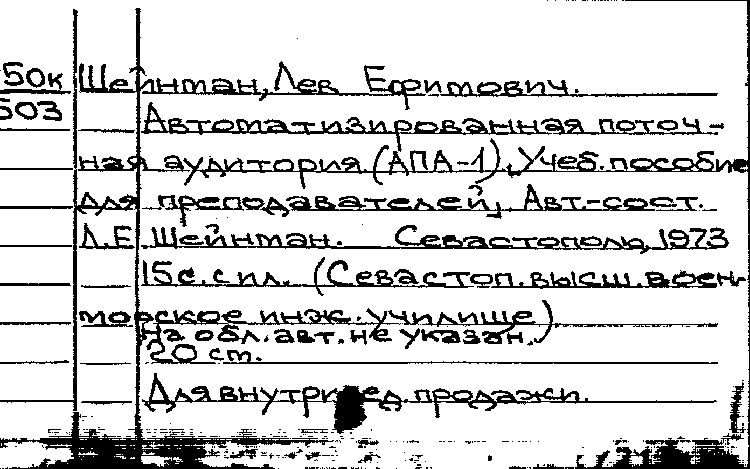 50к Шейнман, Лев Ефимович.
503
Автоматизированная поточ-
ная аудитория (АПА-1). Учеб. пособие
для преподавателей. Авт.-сост.
Л.Е. Шейнман. Севастополь, 1973
15с. с ил. (Севастоп. высш. воен.-
морское инж. училище)
На обл. авт. не указан.
20 см.
Для внутривед. продажи.